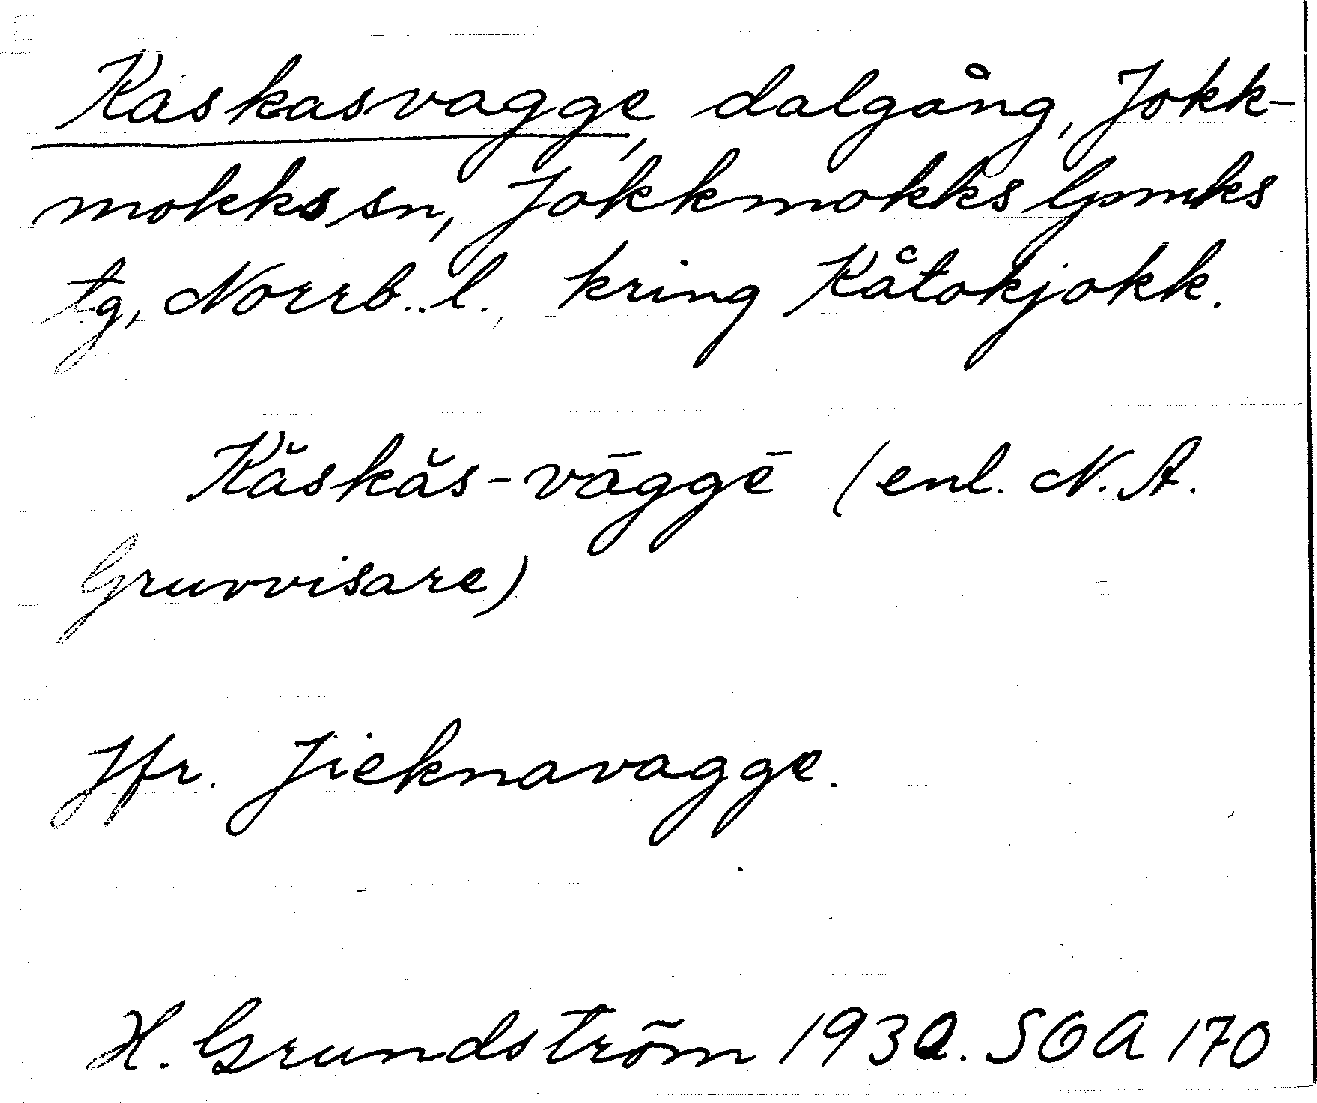 Kaskasvagge, dalgång, Jokk-
mokks sn, Jokkmokks lpmks
tg, Norrb. l., kring Kåtokjokk.
Kăskăs-vāggē (enl. N. A.
Gruvvisare)
Jfr. Jieknavagge.
H. Grundström 1932. SOA 170